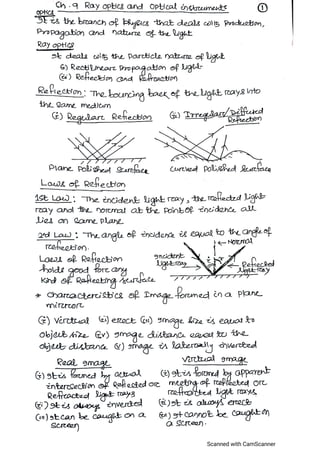 Ch. 9 Ray optics and optical instruments ①
optics
It is the branch of physics that deals with Production,
Propagation and nature of the light
Ray optics
It deals with the particle nature of light
(i) Rectilinear Propagation of light
(ii) Reflection and Refraction
Reflection: The bouncing back of the light rays into
the same medium
(i) Regular Reflection (ii) Irregular/Diffused
Reflection
Plane Polished Surface curved Polished Surface
Laws of Reflection
1st Law: The incident light ray, the reflected light
ray and the normal at the point of incidence all
lies on same plane
2nd Law: The angle of incidence is equal to the angle of
reflection.
Normal
Laws of Reflection
holds good for any
kind of Reflecting surface
incident
light ray
Reflected
light ray
* Characteristics of Image formed in a plane
mirror
(i) Virtual (ii) erect (iii) image size is equal to
object size (iv) image distance equal to the
object distance (v) image is laterally inverted
Real image Virtual image
(i) It is formed by actual
intersection of Reflected or
Refracted light rays
(ii) It is always inverted
(iii) It can be caught on a
screen
(i) It is formed by apparent
meeting of reflected or
refracted light rays
(ii) It is always erect
(iii) It cannot be caught on
a screen.
Scanned with CamScanner